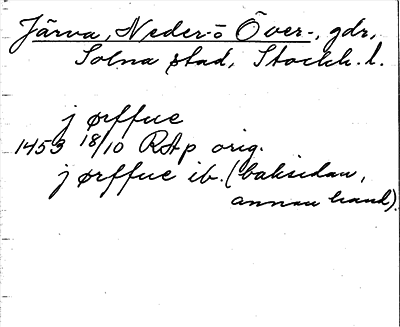 Järva, Neder- o Över-, gdr,
Solna stad, Stockh. l.
j ørffue
1453 18/10 RAp orig.
j ørffue ib. (baksidan,
annan hand).